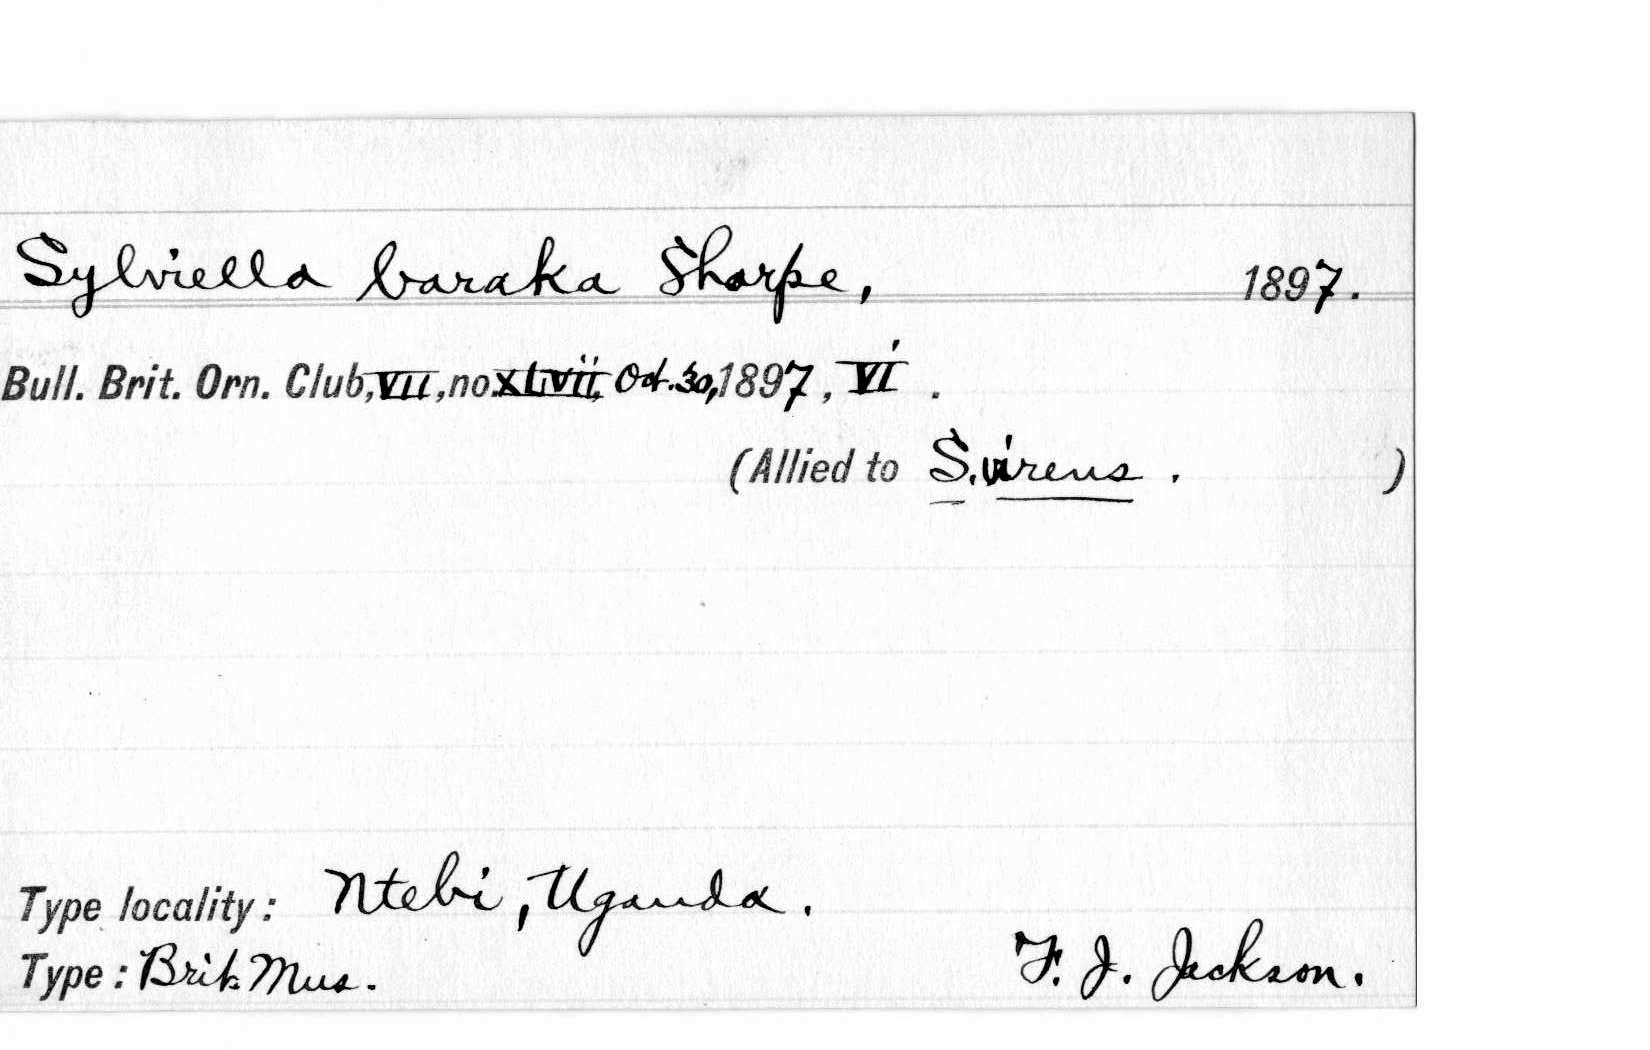 Sylviella baraka Sharpe, 1897.
Bull. Brit. Orn. Club, VII, no. XLVii, Oct. 30, 1897, VI.
(Allied to S. virens. )
Type locality: Ntebi, Uganda.
Type: Brit. Mus. F. J. Jackson.